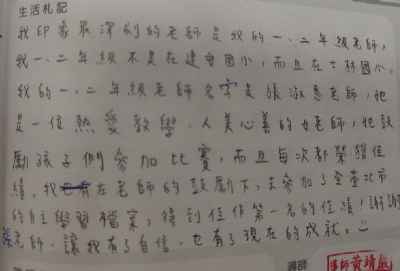 生活札記
我印象最深刻的老師是我的一、二年級老師,
我一、二年級不是在建安國小,而且在士林國小,
我的一、二年級老師名字是張淑惠老師,他
是一位熱愛教學、人美心善的女老師,他鼓
勵孩子們參加比賽,而且每次都榮獲佳
績,我在老師的鼓勵下,去參加了全臺北市
的自主學習檔案,得到佳作第一名的佳績!謝謝
張老師,讓我有了自信,也有了現在的成就。
導師 導師黃靖